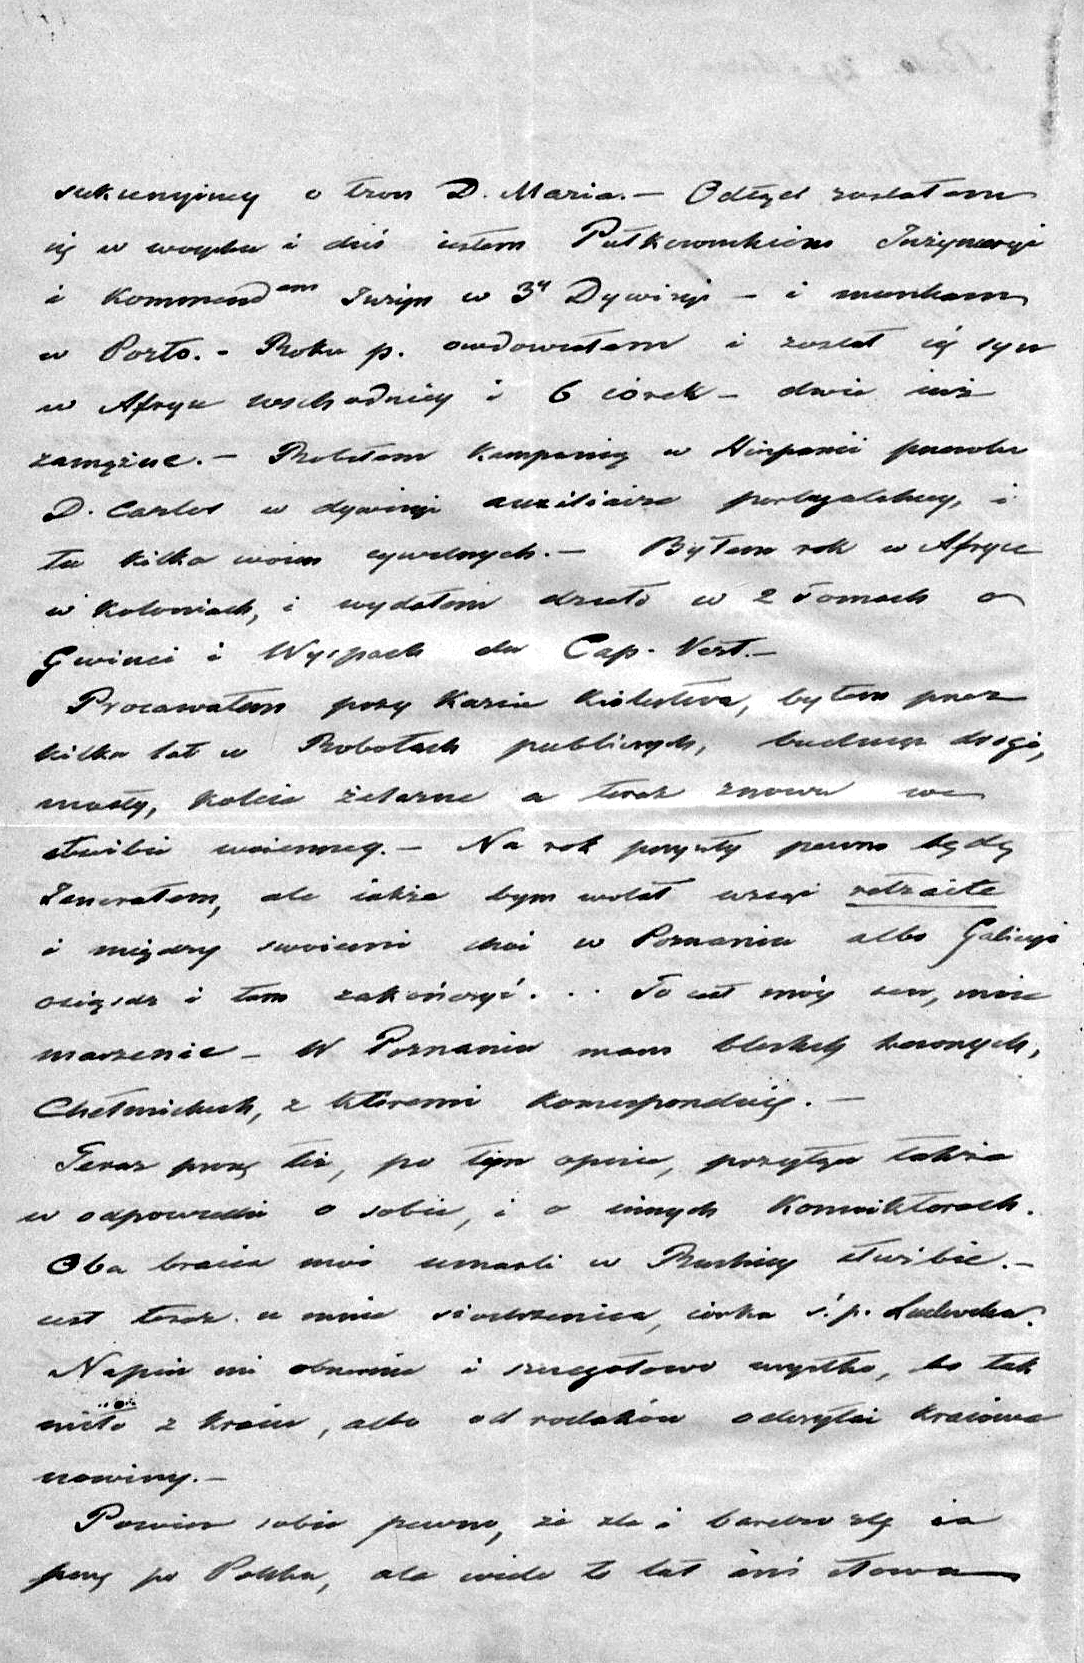 sukcesyjney o tron D. Maria. — Odtąd zostałem
się w woysku i dziś iestem Pułkownikiem Inżynieryi
i Kommendem Inżyn w 3y Dywizyi — i mieszkam
w Porto. - Roku p. owdowiałem i został się syn
w Afryce wschodniey i 6 córek — dwie iuż
zamężne. — Robiłem Kampanią w Hiszpanii przeciw
D. Carlos w dywizyi auxiliaire portugalskiey, i
tu kilka woien cywilnych. — Byłem rok w Afryce
w Koloniach, i wydałem dzieło w 2 Tomach o
Gwinei i Wyspach du Cap-Vert. —
Pracowałem przy Karcie Królestwa, byłem przez
kilka lat w Robotach publicznych, buduiąc drogi,
mosty, koleie żelazne a teraz znowu we
służbie woienney. — Na rok przyszły pewno będę
Jenerałem, ale iakże bym wolał wziąść retraite
i między swoiemi choć w Poznaniu albo Galicyi
osiąść i tam zakończyć. . . To iest móy sen, moie
marzenie — W Poznaniu mam bliskich krewnych,
Chełmickich, z któremi koresponduię. —
Teraz proszę też, po tym opisie, przysyłay także
w odpowiedzi o sobie, i o innych Konwiktorach.
Oba bracia moi umarli w Ruskiey służbie. —
iest teraz u mnie siostrzenica, córka ś. p. Ludwika.
Napisz mi obszernie i szczegółowo wszystko, bo tak
miło z kraiu, albo od rodaków odczytać kraiowe
nowiny. —
Powiesz sobie pewno, że źle i bardzo źle ia
piszę po Polsku, ale wiele to lat ani słowa